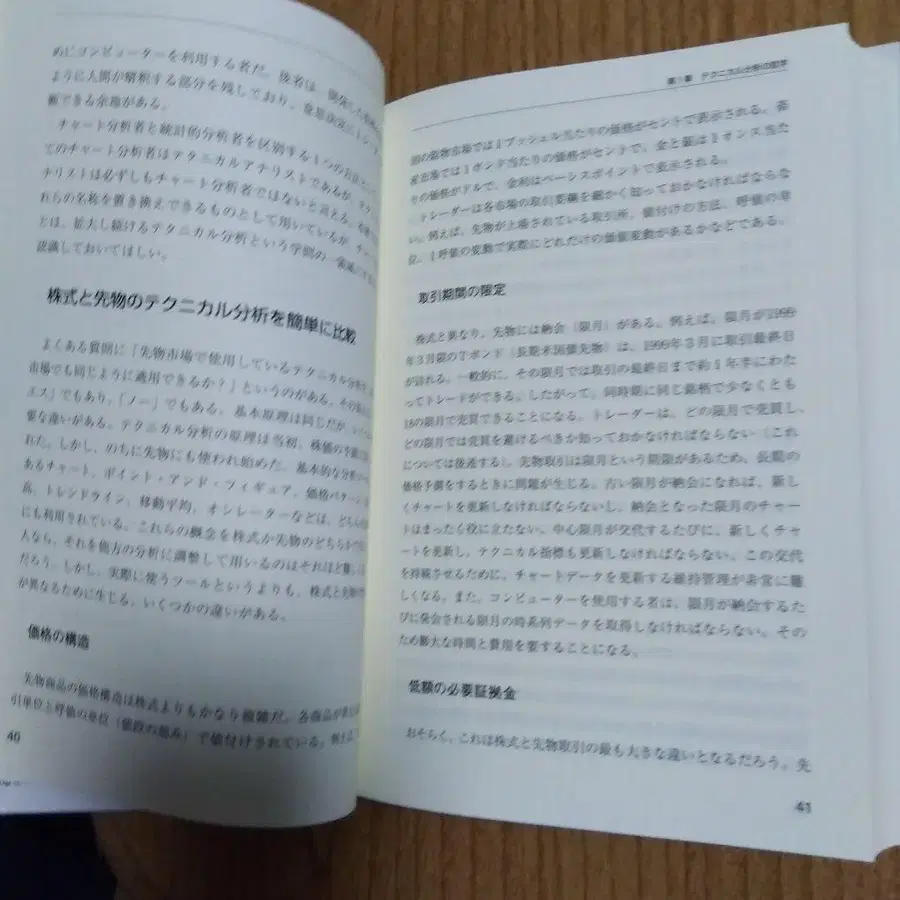 めにコンピューターを利用する者だ。後者は、開発した
ように人間が解釈する部分を残しており、意思決定に
断できる余地がある。
チャート分析者と統計的分析者を区別する1つの方法
てのチャート分析者はテクニカルアナリストであるが、
ナリストは必ずしもチャート分析者ではないと言える。本書で
れらの名称を置き換えできるものとして用いているが、チャー
とは、拡大し続けるテクニカル分析という学問の一領域に
認識しておいてほしい。
株式と先物のテクニカル分析を簡単に比較
よくある質問に「先物市場で使用しているテクニカル分析
市場でも同じように適用できるか?」というのがある。その答えは
エス」でもあり、「ノー」でもある。基本原理は同じだが、いくつか
要な違いがある。テクニカル分析の原理は当初、株価の予測に
れた。しかし、のちに先物にも使われ始めた。基本的な分析ツー
あるチャート、ポイント・アンド・フィギュア、価格パターン、
高、トレンドライン、移動平均、オシレーターなどは、どちら
にも利用されている。これらの概念を株式か先物のどちらかで
人なら、それを他方の分析に調整して用いるのはそれほど難しく
だろう。しかし、実際に使うツールというよりも、株式と先物
が異なるために生じる、いくつかの違いがある。
価格の構造
先物商品の価格構造は株式よりもかなり複雑だ。各商品が異なる
引単位と呼値の単位（値段の刻み）で値付けされている。例えば、
40
第1章 テクニカル分析の哲学
国の穀物市場では1ブッシェル当たりの価格がセントで表示される。畜
産市場では1ポンド当たりの価格がセントで、金と銀は1オンス当た
りの価格がドルで、金利はベーシスポイントで表示される。
トレーダーは各市場の取引要綱を細かく知っておかなければならな
い。例えば、先物が上場されている取引所、値付けの方法、呼値の単
位、1呼値の変動で実際にどれだけの価値変動があるかなどである。
取引期間の限定
株式と異なり、先物には納会（限月）がある。例えば、限月が1999
年3月限のTボンド（長期米国債先物）は、1999年3月に取引最終日
が訪れる。一般的に、その限月では取引の最終日まで約1年半にわた
ってトレードができる。したがって、同時期に同じ銘柄で少なくとも
18の限月で売買できることになる。トレーダーは、どの限月で売買し、
どの限月では売買を避けるべきか知っておかなければならない（これ
については後述する）。先物取引は限月という期限があるため、長期の
価格予測をするときに問題が生じる。古い限月が納会になれば、新し
くチャートを更新しなければならないし、納会となった限月のチャー
トはまったく役に立たない。中心限月が交代するたびに、新しくチャ
ートを更新し、テクニカル指標も更新しなければならない。この交代
を持続させるために、チャートデータを更新する維持管理が非常に難
しくなる。また、コンピューターを使用する者は、限月が納会するた
びに発会される限月の時系列データを取得しなければならない。その
ため膨大な時間と費用を要することになる。
低額の必要証拠金
おそらく、これは株式と先物取引の最も大きな違いとなるだろう。先
41